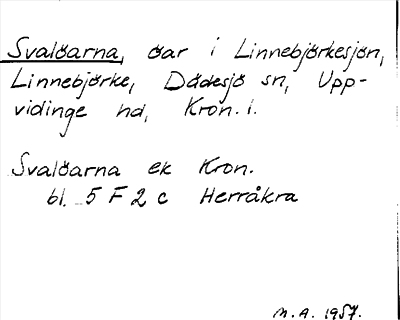 Svalöarna, öar i Linnebjörkesjön,
Linnebjörke, Dädesjö sn, Upp-
vidinge hd, Kron. l.
Svalöarna ek Kron.
bl. 5 F 2 c Herråkra
M.A. 1957.